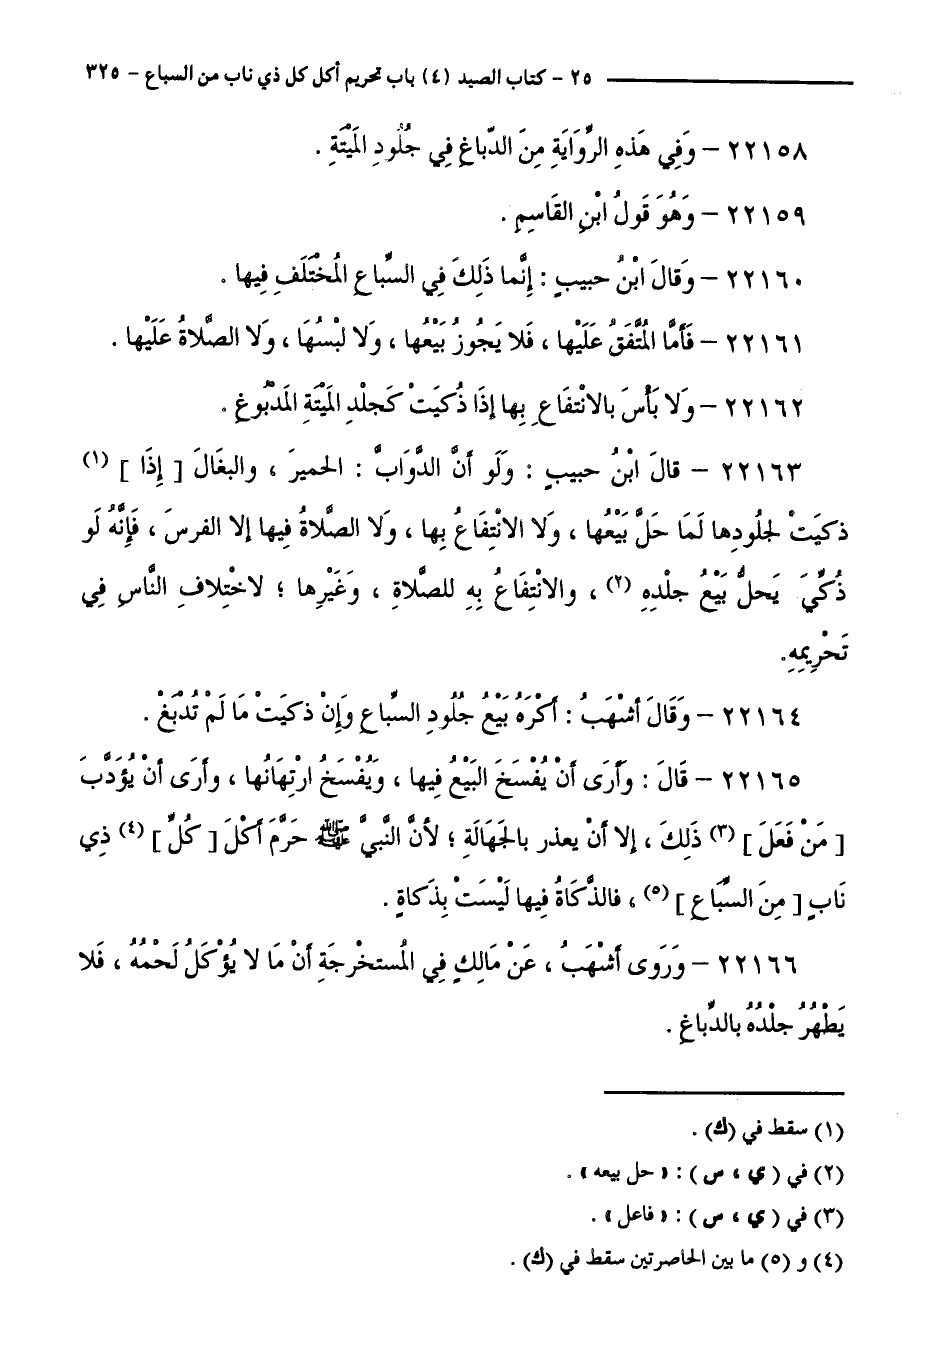 ٢٥ - كتاب الصيد (٤) باب تحريم أكل كل ذي ناب من السباع - ٣٢٥
٢٢١٥٨ - وَفِي هَذِهِ الرِّوَايَةِ مِنَ الدِّبَاغِ فِي جُلُودِ المَيْتَةِ .
٢٢١٥٩ - وَهُوَ قَولُ ابْنِ القَاسِمِ .
٢٢١٦٠ - وَقالَ ابْنُ حبيبٍ : إِنَّما ذَلِكَ فِي السِّباعِ المُخْتَلَفِ فِيها .
٢٢١٦١ - فَأَمَّا المُتَّفَقُ عَلَيْها ، فَلا يَجُوزُ بَيْعُها ، وَلا لبْسُهَا ، وَلا الصَّلاةُ عَلَيْها .
٢٢١٦٢ - وَلا بَأْسَ بالانْتفَاعِ بِها إِذَا ذُكيَتْ كَجلْدِ المَيْتَةِ المَدْبُوغِ .
٢٢١٦٣ - قالَ ابْنُ حبيبٍ : وَلَو أَنَّ الدَّوَابَّ : الحميرَ ، والبغَالَ [ إِذَا ] (١)
ذكيَتْ لجلُودِها لَمَا حَلَّ بَيْعُها ، وَلا الانْتِفَاعُ بها ، وَلا الصَّلاةُ فِيها إلا الفرسَ ، فَإِنَّهُ لَو
ذُكِّيَ يَحلُّ بَيْعُ جلْدِهِ (٢) ، والانْتِفَاعُ بِهِ للصَّلاةِ ، وَغَيْرِها ؛ لاخْتِلافِ النَّاسِ فِي
تَحْرِيمِهِ.
٢٢١٦٤ - وَقَالَ أَشْهَبُ : أَكْرَهُ بَيْعُ جُلُودِ السِّباعِ وَإِنْ ذكيَتْ مَا لَمْ تُدْبَغْ .
٢٢١٦٥ - قَالَ : وَأَرَى أَنْ يُفْسَخَ البَيْعُ فِيها ، وَيُفْسَخُ ارْتِهَانُها ، وأَرَى أَنْ يُؤَدَّبَ
[ مَنْ فَعَلَ ] (٣) ذَلِكَ ، إلا أَنْ يعذر بالجَهَالَةِ ؛ لأَنَّ النَّبِيَّ ﷺ حَرَّمَ أَكْلَ [ كُلِّ ] (٤) ذِي
نَابٍ [ مِنَ السِّبَاعِ ] (٥) ، فالذَّكَاةُ فِيها لَيْسَتْ بِذَكاةٍ .
٢٢١٦٦ - وَرَوَى أَشْهَبُ ، عَنْ مَالِكٍ فِي المُستخْرجَةِ أَنْ مَا لا يُؤْكَلُ لَحْمُهُ ، فَلا
يَطْهُرُ جلْدُهُ بالدِّباغِ .
(١) سقط في (ك) .
(٢) في ( ي ، س ) : « حل بيعه » .
(٣) في ( ي ، س ) : « فاعل » .
(٤) و (٥) ما بين الحاصرتين سقط في (ك) .